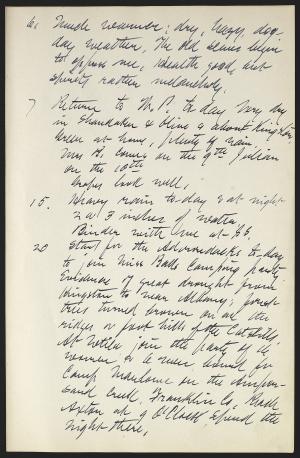 6. Much warmer; dry, hazy, dog-
day weather. The old scenes begin
to oppress me, health good, but
spirits rather melancholy.
7 Return to W. P. to-day very dry
in Shandaken & Olive & about Kingston
Green at home, plenty of rain
Mrs B. comes on the 9th Julian
on the 10th
Grapes look well.
15. Heavy rain to-day & at night
2 or 3 inches of water
Binder with me at
20 Start for the Adirondacks to-day
to join Miss Balls Camping party.
Evidence of great drought from
Kingston to near Albany; forest
trees turned brown on all the
ridges or foot hills of the Catskills.
At Utica join the party of 12
women & 2 men bound for
Camp on the Ampers-
sand creek, Franklin Co. Reach
Axton at 9 o'clock, spend the
night there.